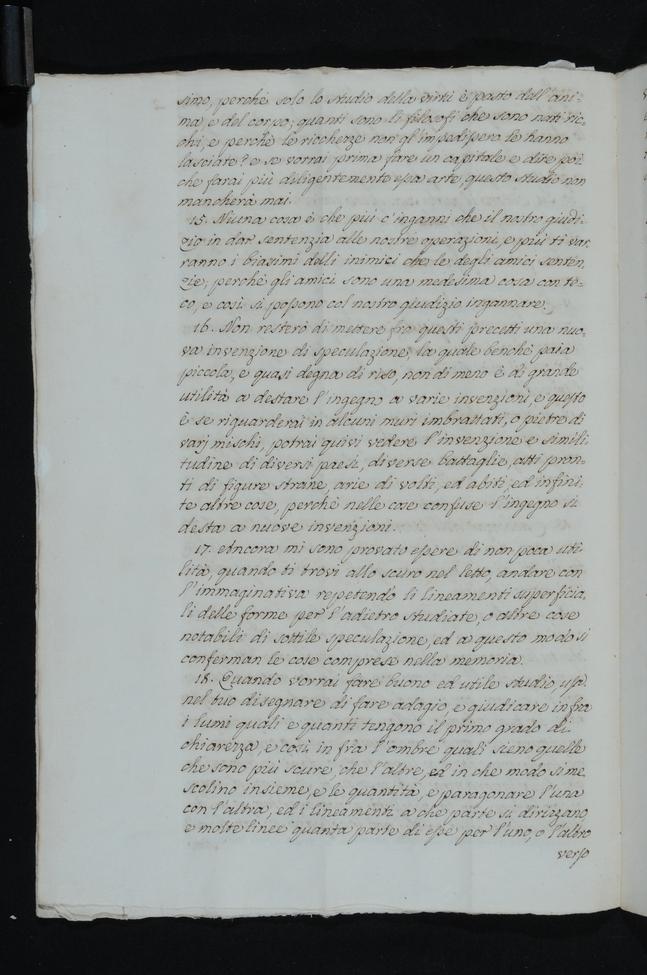 simo, perchè solo lo studio della virtù è pasto dell'ani-
ma, e del corpo; quanti sono li filosofi che sono nati ric-
chi, e perchè le ricchezze non gl'impedissero le hanno
lasciate? e se vorrai prima fare un capitale e dite poi
che farai più diligentemente essa arte, questo studio non
mancherà mai.
15. Niuna cosa è che più c'inganni che il nostro giudi-
zio in dar sentenzia alle nostre operazioni, e più ti var-
ranno i biasimi delli inimici che le degli amici senten-
zie; perchè gli amici sono una medesima cosa con te-
co, e così si possono col nostro giudizio ingannare.
16. Non resterò di mettere fra questi precetti una nuo-
va invenzione di speculazione, la quale benchè paia
piccola, e quasi degna di riso, non di meno è di grande
utilità a destare l'ingegno a varie invenzioni, e questo
è se riguarderai in alcuni muri imbrattati, o pietre di
varj mischi, potrai quivi vedere l'invenzione e simili-
tudine di diversi paesi, diverse battaglie, atti pron-
ti di figure strane, arie di volti, ed abiti ed infini-
te altre cose, perchè nelle cose confuse l'ingegno si
desta a nuove invenzioni.
17. Ancora mi sono provato essere di non poca uti-
lità, quando ti trovi allo scuro nel letto, andare con
l'immaginativa repetendo li lineamenti superficia-
li delle forme per l'adietro studiate, o altre cose
notabili di sottile speculazione, ed a questo modo si
conferman le cose comprese nella memoria.
18. Quando vorrai fare buono ed utile studio, usa
nel tuo disegnare di fare adagio, e giudicare infra
i lumi quali e quanti tengono il primo grado di
chiarezza, e così in fra l'ombre quali sieno quelle
che sono più scure che l'altre, ed in che modo si me-
scolino insieme, e le quantità, e paragonare l'una
con l'altra, ed i lineamenti a che parte si dirizzano,
e molte linee quanta parte di esse per l'uno, o l'altro
verso